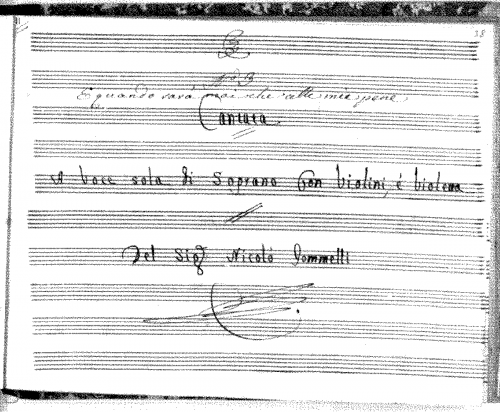 38
No 3
E quando sarà mai che alle mie pene
Cantata
A Voce sola di Soprano Con Violini, é Violetta
Del Sig.r Nicolò Jommelli